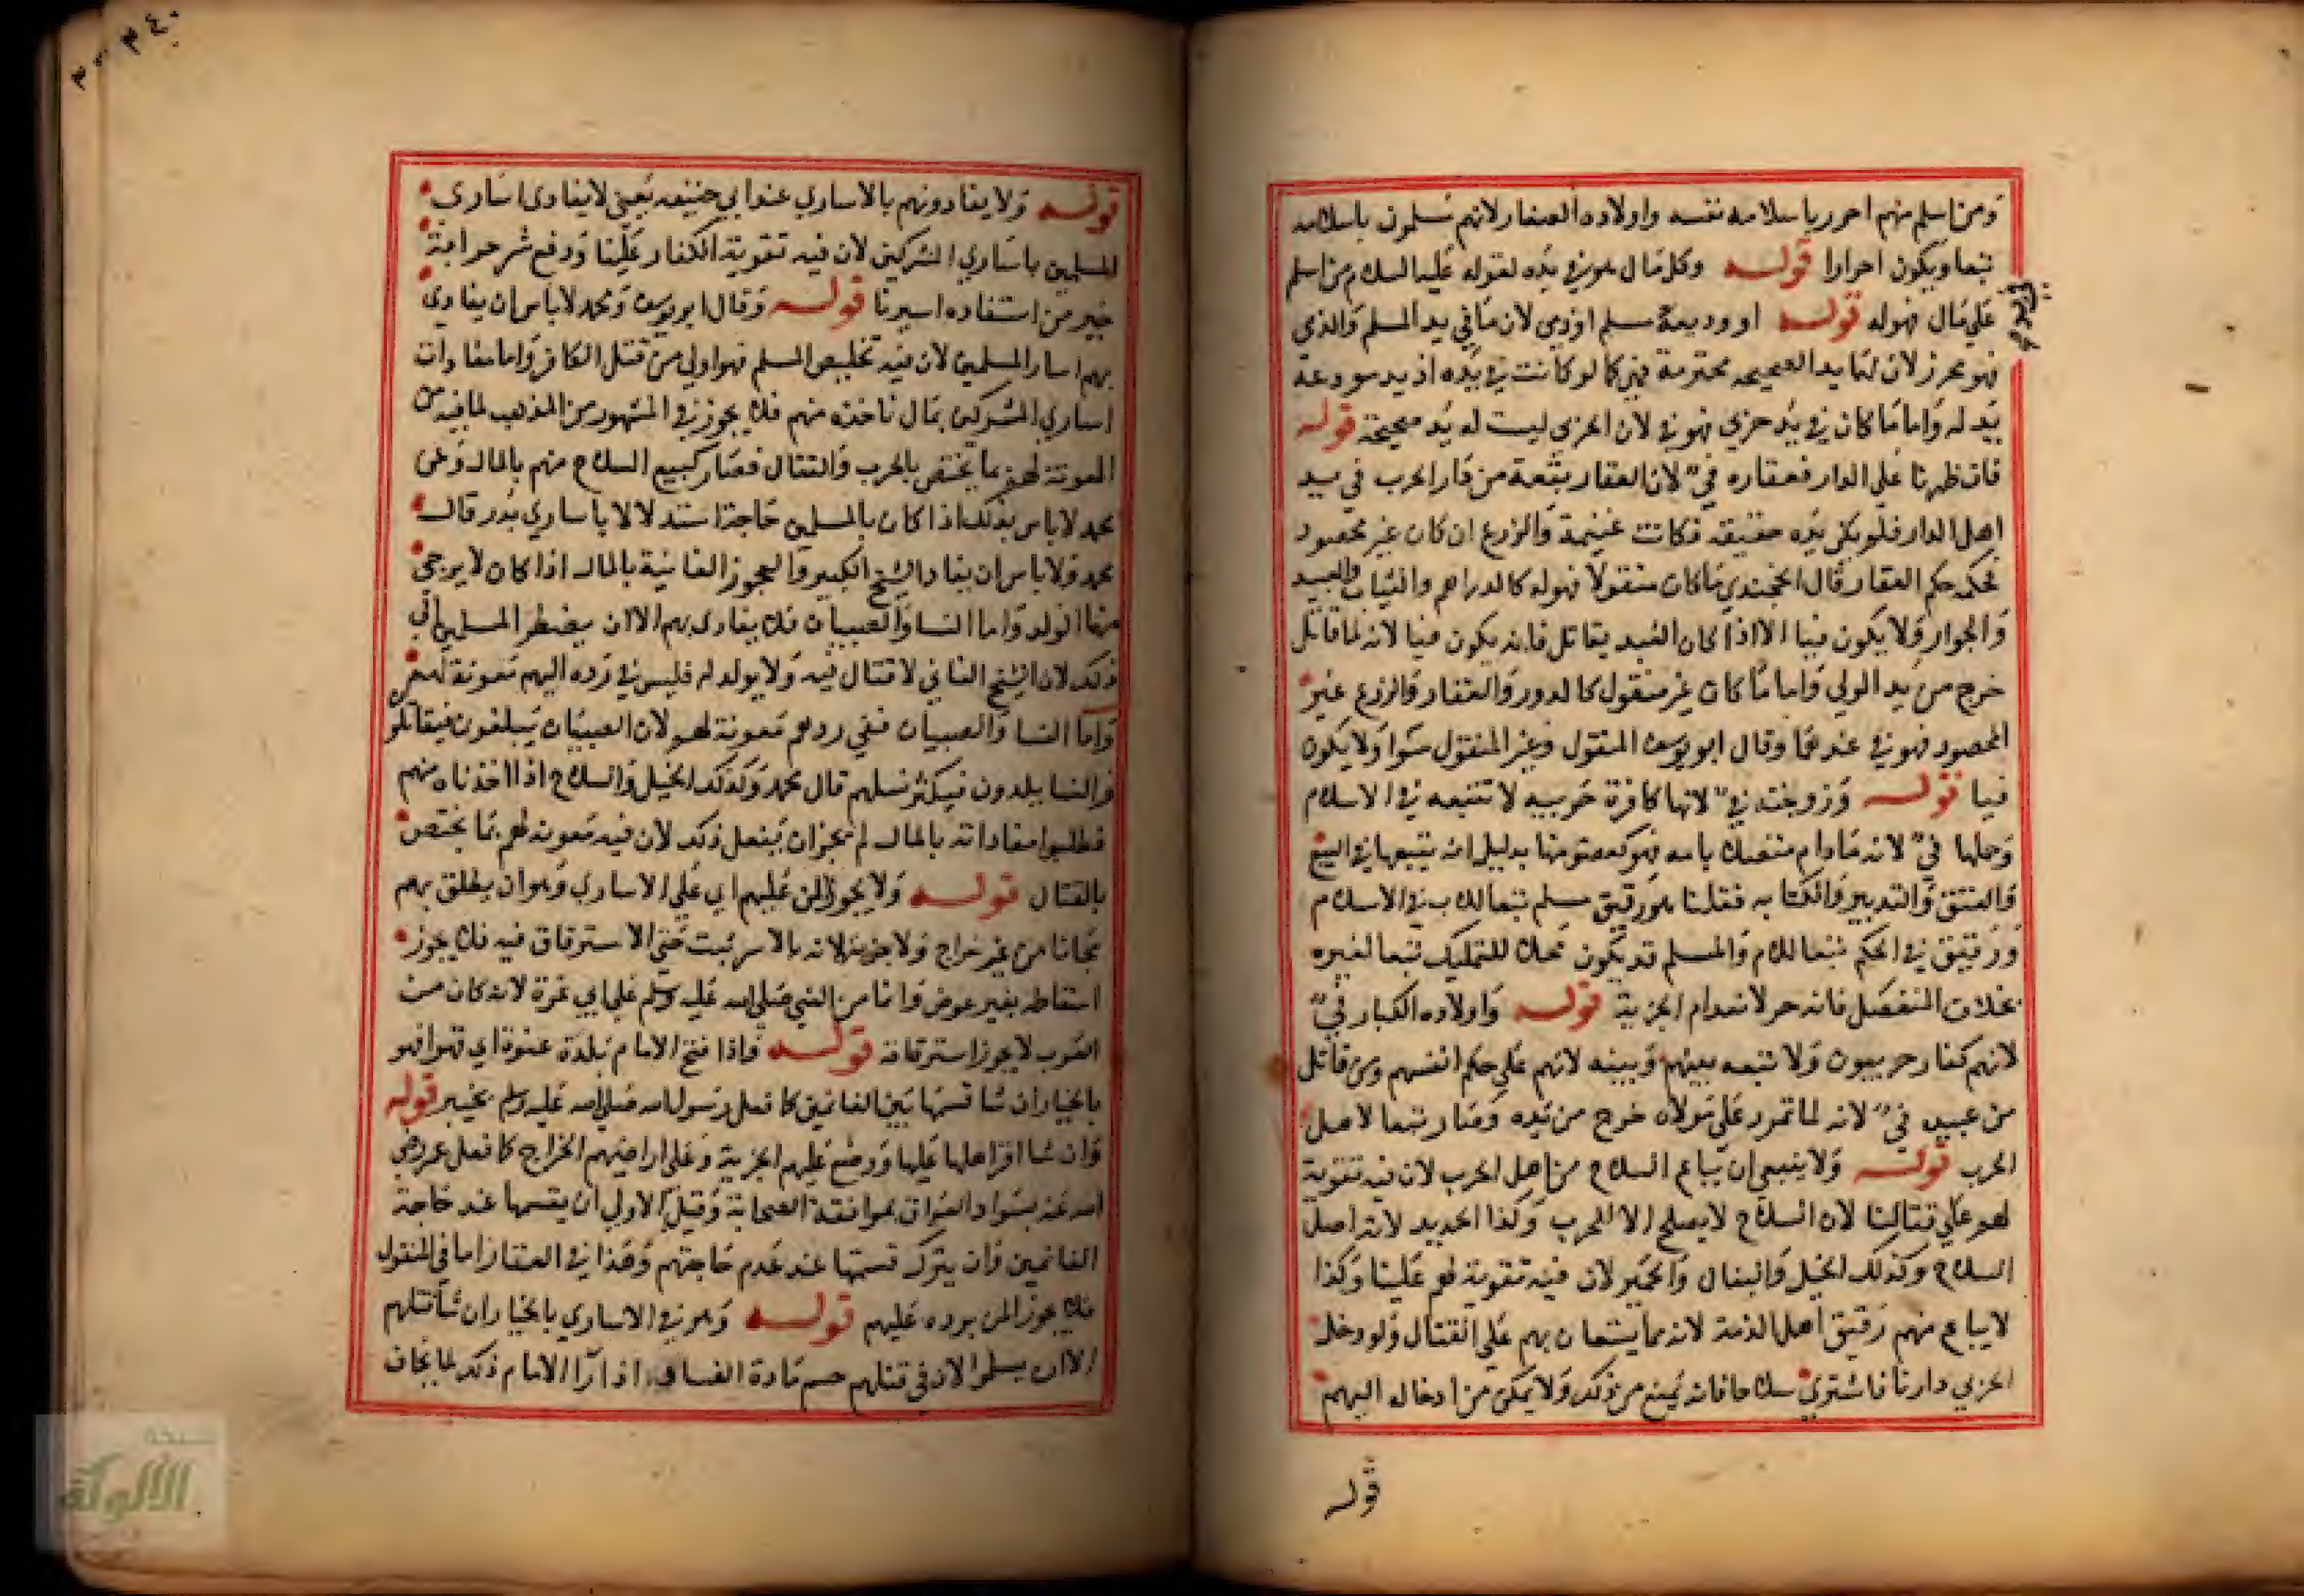 ومن اسلم منهم احرز باسلامه نفسه واولاده الصغار لانهم مسلمون باسلامه
تبعا ويكون احرارا قوله وكل مال هو في يده لقوله عليه السلام من اسلم
علي مال فهو له قوله او وديعة مسلم او ذمي لان ما في يد المسلم والذي
فهو محرز لان لها يد الصحيحه محترمة فهي كما لو كانت في يده اذ يد مودعه
يد له واما ما كان في يد حربي فهو في لان الحربي ليست له يد صحيحة قوله
فان ظهرنا علي الدار فعقاره في لان العقار بقعة من دار الحرب في يد
اهل الدار فلم يكن يده حقيقه فكانت غنيمة والزرع ان كان غير محصود
فحكمه حكم العقار قال الخجندي ما كان منقولا فهو له كالدراهم والثياب والعبيد
والجوار ولا يكون فيا الا اذا كان العبد يقاتل فانه يكون فيا لانه لما قاتل
خرج من يد المولي واما ما كان غير منقول كالدور والعقار والزرع غير
المحصود فهو في عندهما وقال ابو يوسف المنقول وغير المنقول سوا ولا يكون
فيا قوله وزوجته في لانها كافرة حربيه لا تتبعه في الاسلام
وحملها في لانه مادام متصلا بامه فهو كعضو منها بدليل انه يتبعها في البيع
والعتق والتدبير والكتابه فقلنا هو رقيق مسلم تبعا للاب في الاسلام
ورقيق في الحكم تبعا للام والمسلم قد يكون محلا للتمليك تبعا لغيره
بخلاف المنفصل فانه حر لانعدام الجزية قوله واولاده الكبار في
لانهم كفار حربيون ولا تبعه بينهم وبينه لانهم علي حكم انفسهم ومن قاتل
من عبيده في لانه لما تمرد علي مولاه خرج من يده وصار تبعا لاهل
الحرب قوله ولا ينبغي ان يباع السلاح من اهل الحرب لان فيه تقوية
لهم علي قتالنا لان السلاح لا يصلح الا للحرب وكذا الحديد لانه اصل
السلاح وكذلك الخيل والبغال والحمير لان فيه تقوية لهم علينا وكذا
لا يباع منهم رقيق اهل الذمة لانه مما يستعان بهم علي القتال ولو دخل
الحربي دارنا فاشتري سلاحا فانه يمنع من ذلك ولا يمكن من ادخاله اليهم
قوله
قوله ولا يفادونهم بالاساري عند ابي حنيفه يعني لا يفادي اساري
المسلمين باساري المشركين لان فيه تقوية الكفار علينا ودفع شر حرابة
خير من استنقاذه اسيرنا قوله وقال ابو يوسف ومحمد لا باس ان يفادي
بهم اسار المسلمين لان فيه تخليص المسلم فهو اولي من قتل الكافر واما مفادات
اساري المشركين بمال ناخذه منهم فلا يجوز في المشهور من المذهب لما فيه من
المعونة لهم بما يختص بالحرب والقتال فصار كبيع السلاح منهم بالمال وعن
محمد لا باس بذلك اذا كان بالمسلمين حاجة استدلالا باساري بدر قال
محمد ولا باس ان يفاد الشيخ الكبير والعجوز الفانية بالمال اذا كان لا يرجي
منها الولد واما النسا والصبيان فلا يفادي بهم الا ان يضطر المسلمين الي
ذلك لان الشيخ الفاني لا قتال فيه ولا يولد له فليس في رده اليهم معونة لهم
واما النسا والصبيان ففي ردهم معونة لهم لان الصبيان يبلغون فيقاتلو
والنسا يلدون فيكثر نسلهم قال محمد وكذلك الخيل والسلاح اذا اخذناه منهم
فطلبوا مفاداته بالمال لم يجز ان يفعل ذلك لان فيه معونة لهم بما يختص
بالقتال قوله ولا يجوز المن عليهم اي علي الاساري وهو ان يطلق بهم
مجانا من غير خراج ولا جزية لانه بالاسر ثبت حق الاسترقاق فيه فلا يجوز
اسقاطه بغير عوض وانما من النبي صلي الله عليه وسلم علي ابي عزة لانه كان من
العرب لا يجوز استرقاقه قوله واذا فتح الامام بلدة عنوة اي قهرا فهو
بالخيار ان شا قسمها بين الغانمين كما فعل رسول الله صلي الله عليه وسلم بخيبر قوله
وان شا اقر اهلها عليها ووضع عليهم الجزية وعلي اراضيهم الخراج كما فعل عمر رضي
الله عنه بسواد العراق بموافقة الصحابة وقيل الاولي ان يقسمها عند حاجة
الغانمين وان يترك قسمتها عند عدم حاجتهم وهذا في العقار اما في المنقول
فلا يجوز المن برده عليهم قوله وهو في الاساري بالخيار ان شا قتلهم
الا ان يسلموا لان في قتلهم حسم مادة الفساد اذا را الامام ذلك لما يخاف
شبكة
الألوكة